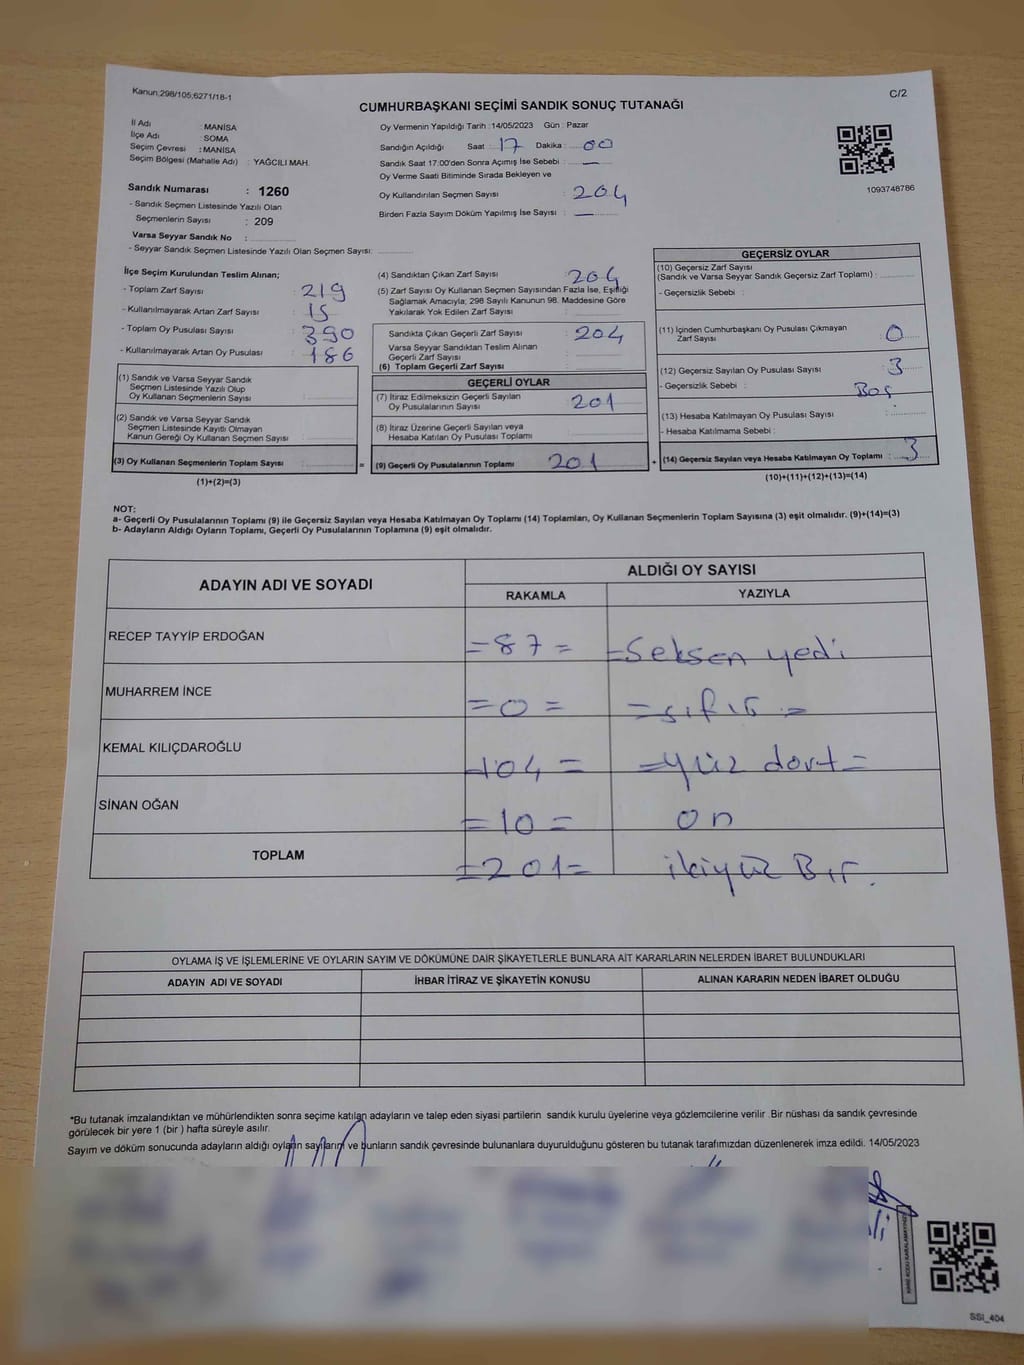 Kanun:298/105;6271/18-1
C/2
CUMHURBAŞKANI SEÇİMİ SANDIK SONUÇ TUTANAĞI
İl Adı : MANİSA
İlçe Adı : SOMA
Seçim Çevresi : MANİSA
Seçim Bölgesi (Mahalle Adı) : YAĞCILI MAH.
Oy Vermenin Yapıldığı Tarih : 14/05/2023 Gün : Pazar
Sandığın Açıldığı Saat : 17 Dakika : 00
Sandık Saat 17:00'den Sonra Açımış İse Sebebi : —
Oy Verme Saati Bitiminde Sırada Bekleyen ve
Oy Kullandırılan Seçmen Sayısı : 204
Birden Fazla Sayım Döküm Yapılmış İse Sayısı : —
1093748786
Sandık Numarası : 1260
- Sandık Seçmen Listesinde Yazılı Olan
Seçmenlerin Sayısı : 209
Varsa Seyyar Sandık No :
- Seyyar Sandık Seçmen Listesinde Yazılı Olan Seçmen Sayısı:
İlçe Seçim Kurulundan Teslim Alınan;
- Toplam Zarf Sayısı : 219
- Kullanılmayarak Artan Zarf Sayısı : 15
- Toplam Oy Pusulası Sayısı : 390
- Kullanılmayarak Artan Oy Pusulası : 186
(1) Sandık ve Varsa Seyyar Sandık
Seçmen Listesinde Yazılı Olup
Oy Kullanan Seçmenlerin Sayısı :
(2) Sandık ve Varsa Seyyar Sandık
Seçmen Listesinde Kayıtlı Olmayan
Kanun Gereği Oy Kullanan Seçmen Sayısı :
(3) Oy Kullanan Seçmenlerin Toplam Sayısı : =
(1)+(2)=(3)
(4) Sandıktan Çıkan Zarf Sayısı : 204
(5) Zarf Sayısı Oy Kullanan Seçmen Sayısından Fazla İse, Eşitliği
Sağlamak Amacıyla; 298 Sayılı Kanunun 98. Maddesine Göre
Yakılarak Yok Edilen Zarf Sayısı :
Sandıkta Çıkan Geçerli Zarf Sayısı : 204
Varsa Seyyar Sandıktan Teslim Alınan
Geçerli Zarf Sayısı :
(6) Toplam Geçerli Zarf Sayısı :
GEÇERLİ OYLAR
(7) İtiraz Edilmeksizin Geçerli Sayılan
Oy Pusulalarının Sayısı : 201
(8) İtiraz Üzerine Geçerli Sayılan veya
Hesaba Katılan Oy Pusulası Toplamı :
(9) Geçerli Oy Pusulalarının Toplamı 201 +
GEÇERSİZ OYLAR
(10) Geçersiz Zarf Sayısı
(Sandık ve Varsa Seyyar Sandık Geçersiz Zarf Toplamı) :
- Geçersizlik Sebebi :
(11) İçinden Cumhurbaşkanı Oy Pusulası Çıkmayan
Zarf Sayısı : 0
(12) Geçersiz Sayılan Oy Pusulası Sayısı : 3
- Geçersizlik Sebebi : Boş
(13) Hesaba Katılmayan Oy Pusulası Sayısı :
- Hesaba Katılmama Sebebi :
(14) Geçersiz Sayılan veya Hesaba Katılmayan Oy Toplamı : 3
(10)+(11)+(12)+(13)=(14)
NOT:
a- Geçerli Oy Pusulalarının Toplamı (9) ile Geçersiz Sayılan veya Hesaba Katılmayan Oy Toplamı (14) Toplamları, Oy Kullanan Seçmenlerin Toplam Sayısına (3) eşit olmalıdır. (9)+(14)=(3)
b- Adayların Aldığı Oyların Toplamı, Geçerli Oy Pusulalarının Toplamına (9) eşit olmalıdır.
ADAYIN ADI VE SOYADI
ALDIĞI OY SAYISI
RAKAMLA YAZIYLA
RECEP TAYYİP ERDOĞAN =87= =Seksen yedi
MUHARREM İNCE =0= =sıfır=
KEMAL KILIÇDAROĞLU =104= =yüz dört=
SİNAN OĞAN =10= on
TOPLAM =201= ikiyüz Bir.
OYLAMA İŞ VE İŞLEMLERİNE VE OYLARIN SAYIM VE DÖKÜMÜNE DAİR ŞİKAYETLERLE BUNLARA AİT KARARLARIN NELERDEN İBARET BULUNDUKLARI
ADAYIN ADI VE SOYADI İHBAR İTİRAZ VE ŞİKAYETİN KONUSU ALINAN KARARIN NEDEN İBARET OLDUĞU
*Bu tutanak imzalandıktan ve mühürlendikten sonra seçime katılan adayların ve talep eden siyasi partilerin sandık kurulu üyelerine veya gözlemcilerine verilir. Bir nüshası da sandık çevresinde
görülecek bir yere 1 (bir ) hafta süreyle asılır.
Sayım ve döküm sonucunda adayların aldığı oyların sayılarını ve bunların sandık çevresinde bulunanlara duyurulduğunu gösteren bu tutanak tarafımızdan düzenlenerek imza edildi. 14/05/2023
SSI_404